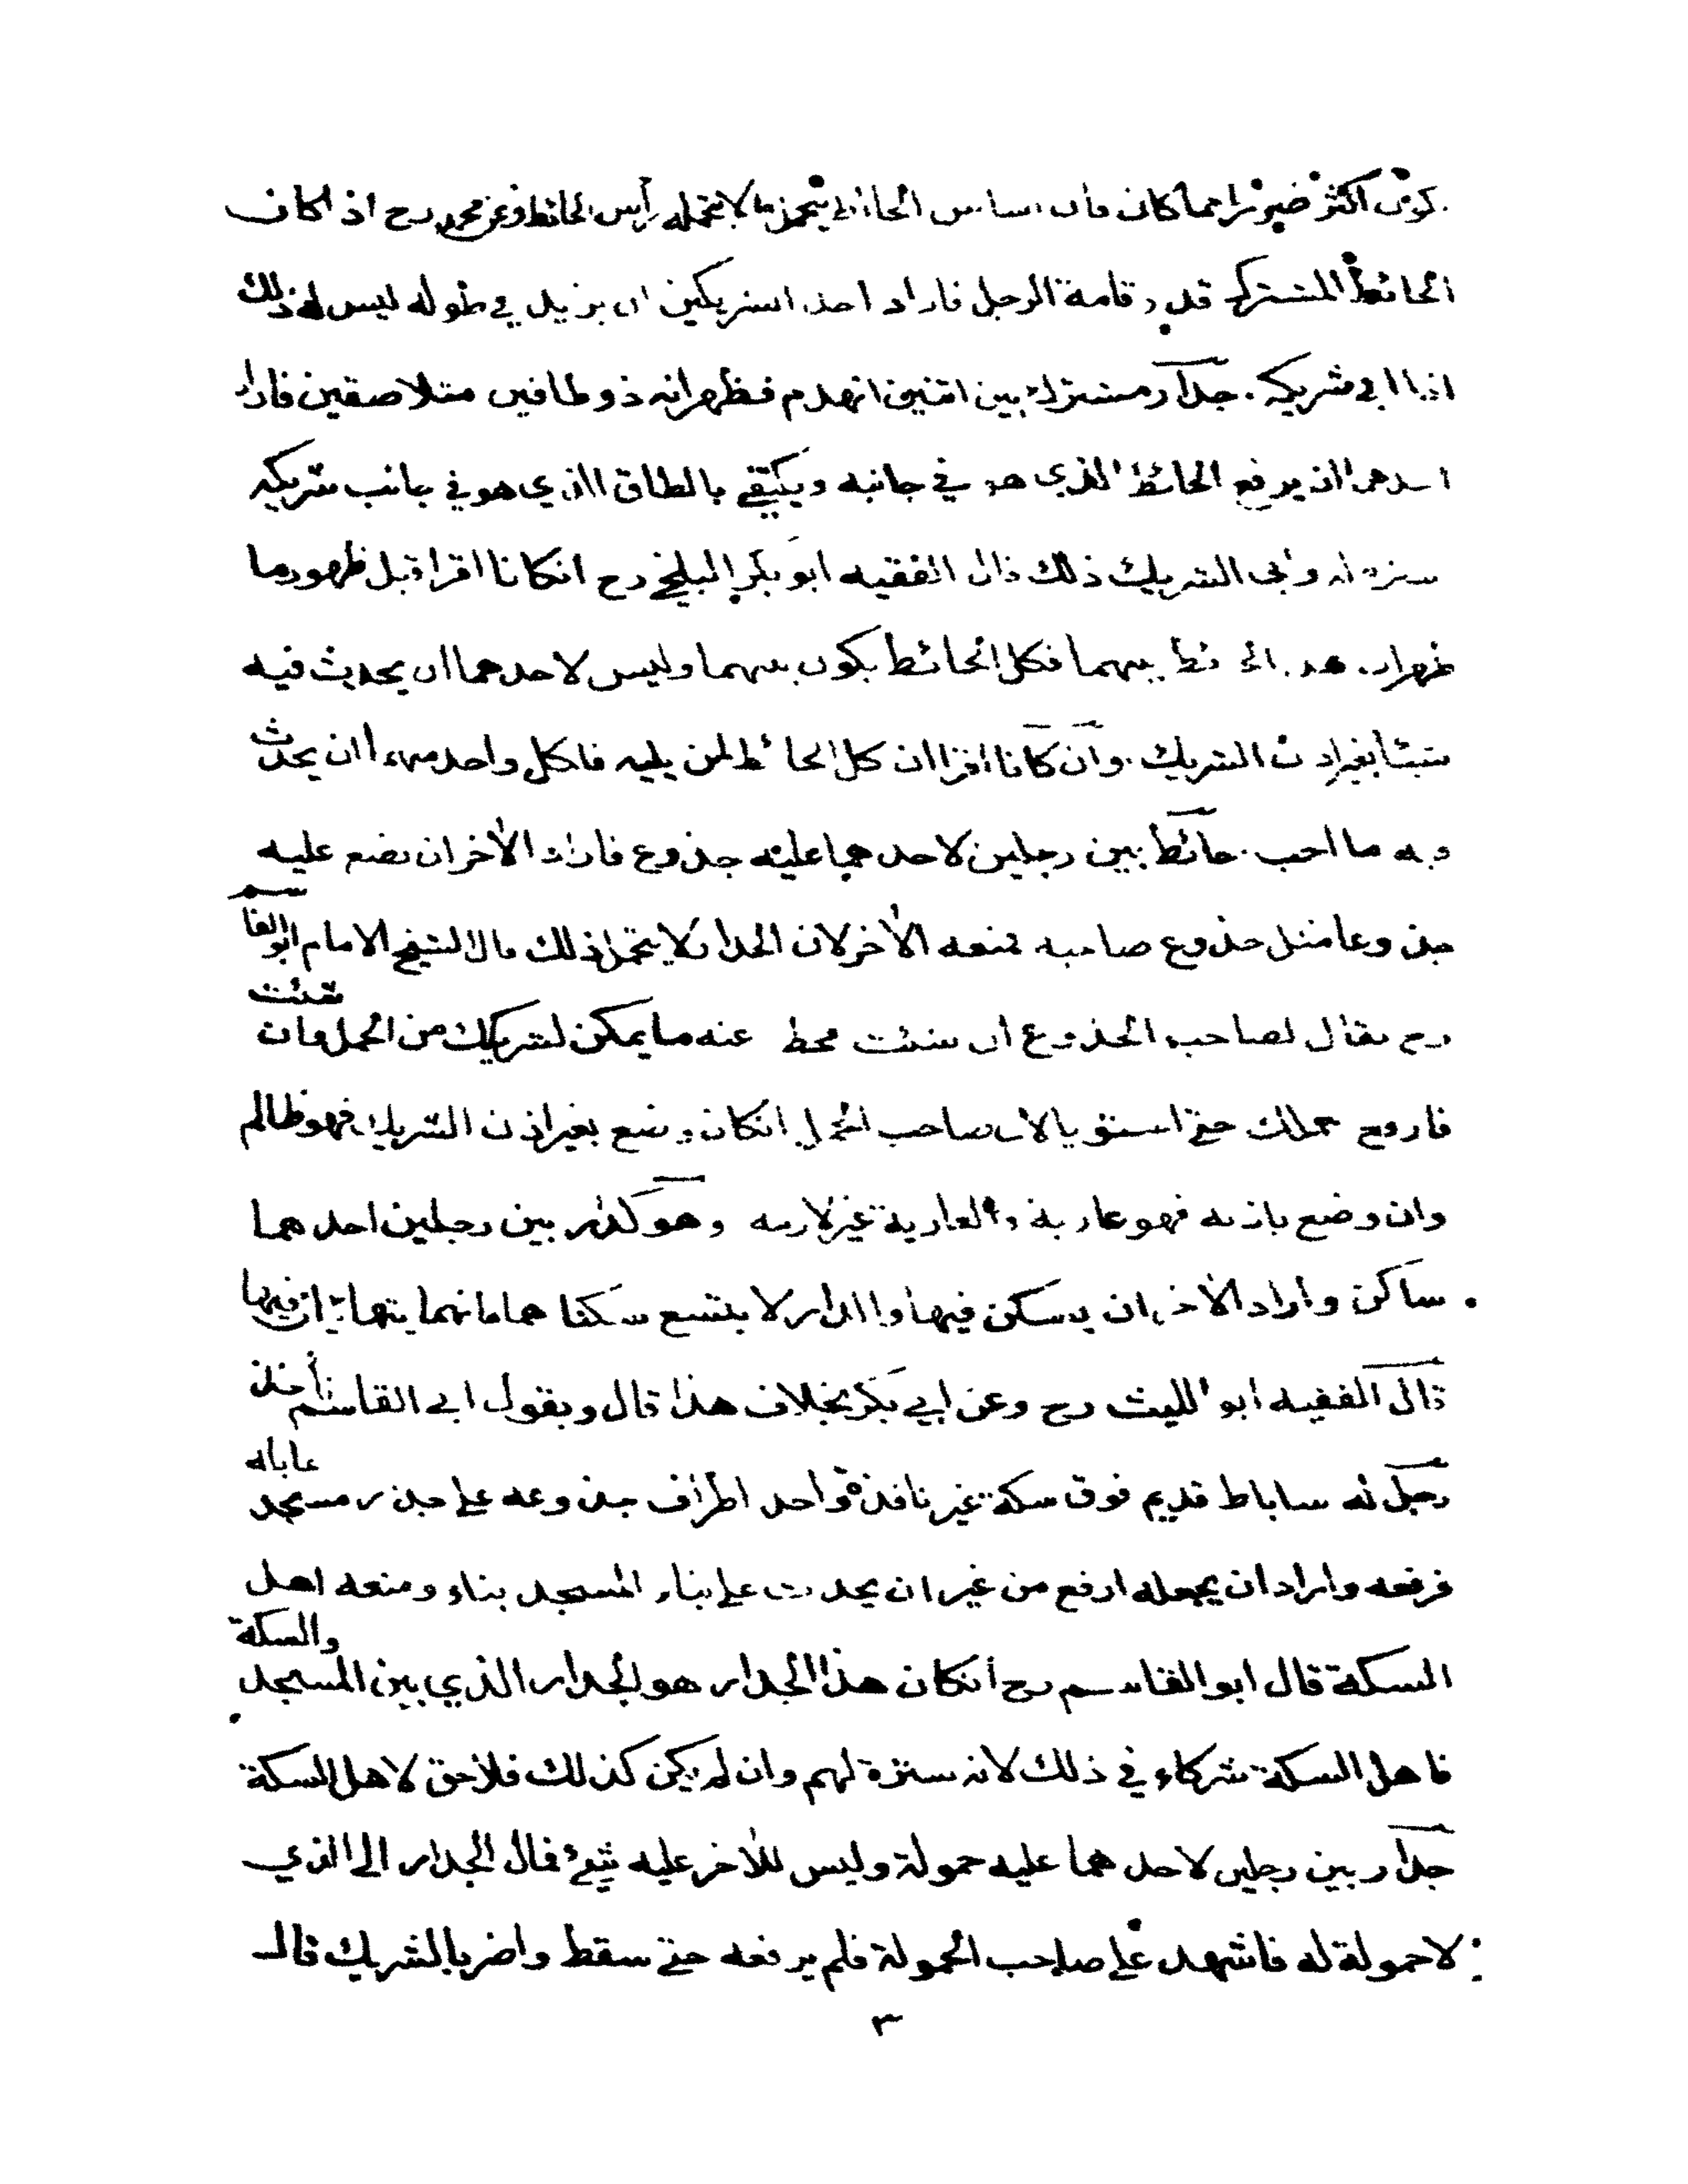 يكون اكثر ضررا مما كان فان اساس الحائط يتحمل ما لا يتحمله رأس الحائط وعن محمد رح اذا كان
الحائط المشترك قدر قامة الرجل فاراد احد الشريكين ان يزيد في طوله ليس له ذلك
اذا ابى شريكه . جدار مشترك بين اثنين انهدم فظهر انه ذو طاقين متلاصقين فاراد
احدهما ان يرفع الحائط الذي هو في جانبه ويكتفي بالطاق الذي هو في جانب شريكه
سترة له وابى الشريك ذلك قال الفقيه ابو بكر البلخي رح انكانا اقرا قبل ظهورهما
ان هذا الحائط بينهما فكل الحائط يكون بينهما وليس لاحدهما ان يحدث فيه
شيئا بغير اذن الشريك . وان كانا اقرا ان كل الحائط لمن يليه فلكل واحد منهما ان يحدث
فيه ما احب . حائط بين رجلين لاحدهما عليه جذوع فاراد الاخر ان يضع عليه
جذوعا مثل جذوع صاحبه فمنعه الاخر لان الجدار لا يتحمل ذلك قال الشيخ الامام ابو القاسم
رح يقال لصاحب الجذوع ان شئت فحط عنه ما يمكن لشريكك من الحمل وان شئت
فارفع حملك حتى استويا لان صاحب الحمل انكان وضع بغير اذن الشريك فهو ظالم
وان وضع باذنه فهو عارية والعارية غير لازمة وهو كدار بين رجلين احدهما
ساكن واراد الاخر ان يسكن فيها والدار لا يتسع سكناهما فانهما يتهايئان فيها
قال الفقيه ابو الليث رح وعن ابي بكر بخلاف هذا قال وبقول ابي القاسم نأخذ
رجل له ساباط قديم فوق سكة غير نافذة وواحد اطراف جذوعه على جدار مسجد
فرفعه واراد ان يجعله ارفع من غير ان يحدث على بناء المسجد بناء ومنعه اهل
السكة قال ابو القاسم رح أنكان هذا الجدار هو الجدار الذي بين المسجد والسكة
فاهل السكة شركاء في ذلك لانه سترة لهم وان لم يكن كذلك فلا حق لاهل السكة
جدار بين رجلين لاحدهما عليه حمولة وليس للاخر عليه شيء فمال الجدار الى الذي
لا حمولة له فاشهد على صاحب الحمولة فلم يرفعه حتى سقط واضر بالشريك قال
٣